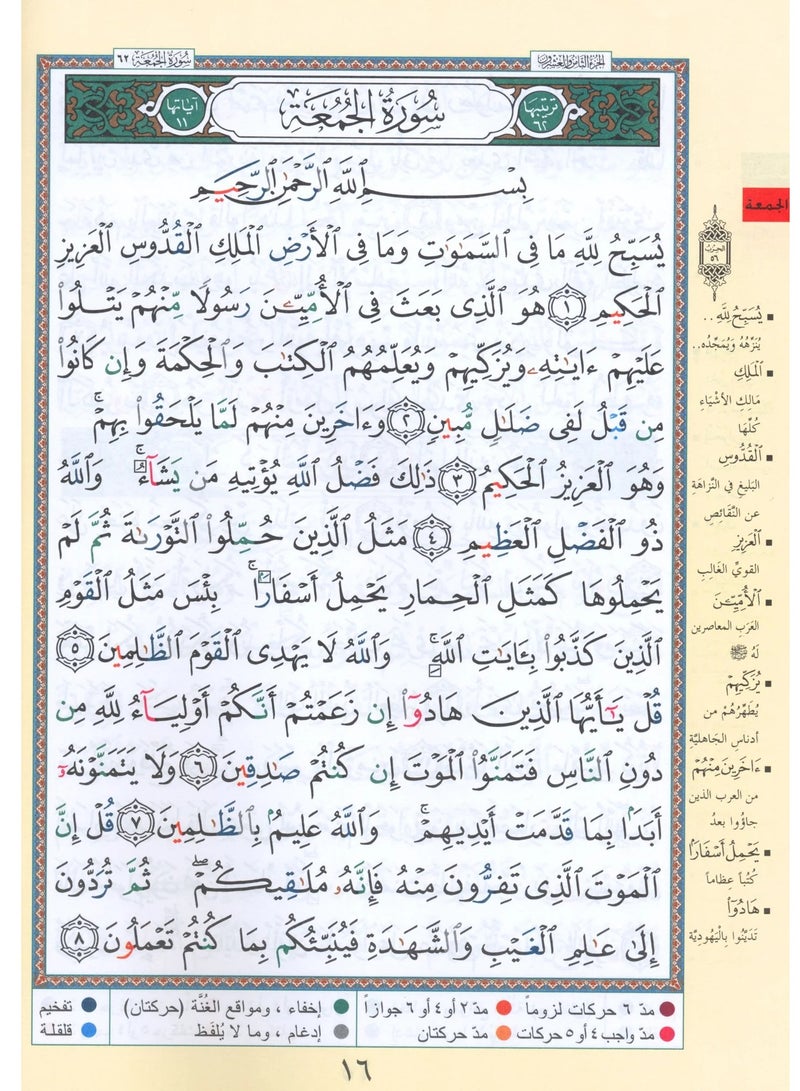 سُورَةُ الجُمُعَة ٦٢
الجزء الثامن والعشرون
ترتيبها ٦٢
سُورَةُ الجُمُعَة
آياتها ١١
بِسْمِ ٱللَّهِ ٱلرَّحْمَٰنِ ٱلرَّحِيمِ
يُسَبِّحُ لِلَّهِ مَا فِى ٱلسَّمَٰوَٰتِ وَمَا فِى ٱلْأَرْضِ ٱلْمَلِكِ ٱلْقُدُّوسِ ٱلْعَزِيزِ
ٱلْحَكِيمِ ١ هُوَ ٱلَّذِى بَعَثَ فِى ٱلْأُمِّيِّـۧنَ رَسُولًا مِّنْهُمْ يَتْلُوا۟
عَلَيْهِمْ ءَايَٰتِهِۦ وَيُزَكِّيهِمْ وَيُعَلِّمُهُمُ ٱلْكِتَٰبَ وَٱلْحِكْمَةَ وَإِن كَانُوا۟
مِن قَبْلُ لَفِى ضَلَٰلٍ مُّبِينٍ ٢ وَءَاخَرِينَ مِنْهُمْ لَمَّا يَلْحَقُوا۟ بِهِمْ ۚ
وَهُوَ ٱلْعَزِيزُ ٱلْحَكِيمُ ٣ ذَٰلِكَ فَضْلُ ٱللَّهِ يُؤْتِيهِ مَن يَشَآءُ ۚ وَٱللَّهُ
ذُو ٱلْفَضْلِ ٱلْعَظِيمِ ٤ مَثَلُ ٱلَّذِينَ حُمِّلُوا۟ ٱلتَّوْرَىٰةَ ثُمَّ لَمْ
يَحْمِلُوهَا كَمَثَلِ ٱلْحِمَارِ يَحْمِلُ أَسْفَارًۢا ۚ بِئْسَ مَثَلُ ٱلْقَوْمِ
ٱلَّذِينَ كَذَّبُوا۟ بِـَٔايَٰتِ ٱللَّهِ ۚ وَٱللَّهُ لَا يَهْدِى ٱلْقَوْمَ ٱلظَّٰلِمِينَ ٥
قُلْ يَٰٓأَيُّهَا ٱلَّذِينَ هَادُوٓا۟ إِن زَعَمْتُمْ أَنَّكُمْ أَوْلِيَآءُ لِلَّهِ مِن
دُونِ ٱلنَّاسِ فَتَمَنَّوُا۟ ٱلْمَوْتَ إِن كُنتُمْ صَٰدِقِينَ ٦ وَلَا يَتَمَنَّوْنَهُۥٓ
أَبَدًۢا بِمَا قَدَّمَتْ أَيْدِيهِمْ ۚ وَٱللَّهُ عَلِيمٌۢ بِٱلظَّٰلِمِينَ ٧ قُلْ إِنَّ
ٱلْمَوْتَ ٱلَّذِى تَفِرُّونَ مِنْهُ فَإِنَّهُۥ مُلَٰقِيكُمْ ۖ ثُمَّ تُرَدُّونَ
إِلَىٰ عَٰلِمِ ٱلْغَيْبِ وَٱلشَّهَٰدَةِ فَيُنَبِّئُكُم بِمَا كُنتُمْ تَعْمَلُونَ ٨
الجمعة
الحزب ٥٦
▪ يُسَبِّحُ لِلَّهِ ..
يُنَزِّهُهُ وَيُمَجِّدُه ..
▪ ٱلْمَلِكِ
مَالِك الأشْيَاء
كُلِّهَا
▪ ٱلْقُدُّوسِ
البَلِيغ فِي النَّزَاهَة
عن النَّقَائِصِ
▪ ٱلْعَزِيزِ
القويِّ الغَالِب
▪ ٱلْأُمِّيِّـۧنَ
العَرَب المعاصرين
لَهُ ﷺ
▪ يُزَكِّيهِمْ
يُطَهِّرُهُمْ من
أدناسِ الجَاهليَّة
▪ ءَاخَرِينَ مِنْهُمْ
من العرب الذين
جاؤوا بعدُ
▪ يَحْمِلُ أَسْفَارًا
كُتُباً عِظاماً
▪ هَادُوٓا۟
تَدَيَّنُوا بِالْيَهُودِيَّة
مدّ ٦ حركات لزوماً مدّ ٢ أو ٤ أو ٦ جوازاً إخفاء ، ومواقع الغُنَّة (حركتان) تفخيم
مدّ واجب ٤ أو ٥ حركات مدّ حركتان إدغام ، وما لا يُلفَظ قلقلة
١٦